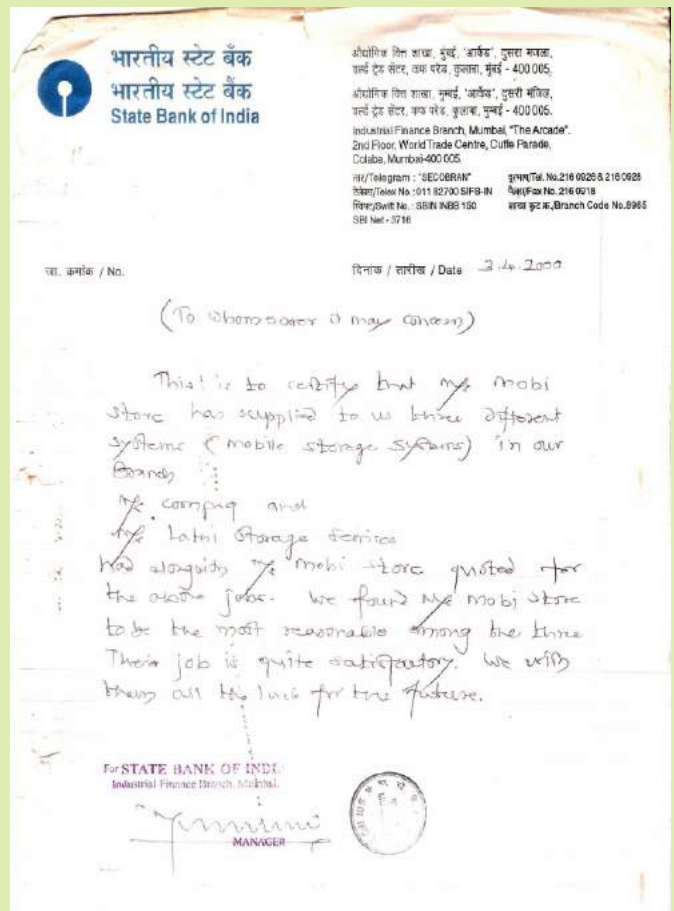 भारतीय स्टेट बँक
भारतीय स्टेट बैंक
State Bank of India
औद्योगिक वित्त शाखा, मुंबई, 'आर्केड', दुसरा मजला,
वर्ल्ड ट्रेड सेंटर, कफ परेड, कुलाबा, मुंबई - 400 005.
औद्योगिक वित्त शाखा, मुम्बई, 'आर्केड', दुसरी मंजिल,
वर्ल्ड ट्रेड सेंटर, कफ परेड, कुलाबा, मुम्बई - 400 005.
Industrial Finance Branch, Mumbai, "The Arcade".
2nd Floor, World Trade Centre, Cuffe Parade,
Colaba, Mumbai-400 005.
तार/Telegram : "SECOBRAN"
दूरभाष/Tel. No. 216 0926 & 216 0928
टेलेक्स/Telex No. : 011 82700 SIFB-IN
फैक्स/Fax No. 216 0918
स्विफ्ट/Swift No. : SBIN INBB 150
शाखा कूट क्र./Branch Code No. 8965
SBI Net - 3716
जा. क्रमांक / No.
दिनांक / तारीख / Date 3.4.2000
(To whomsoever it may concern)
This is to certify that M/s Mobi
Store has supplied to us three different
systems (mobile storage systems) in our
Branch
M/s. Compaq and
M/s. Storage Service
had alongwith M/s Mobi Store quoted for
the above jobs. We found M/s Mobi Store
to be the most reasonable among the three
Their job is quite satisfactory. We wish
them all the luck for the future.
For STATE BANK OF INDI
Industrial Finance Branch, Mumbai.
MANAGER